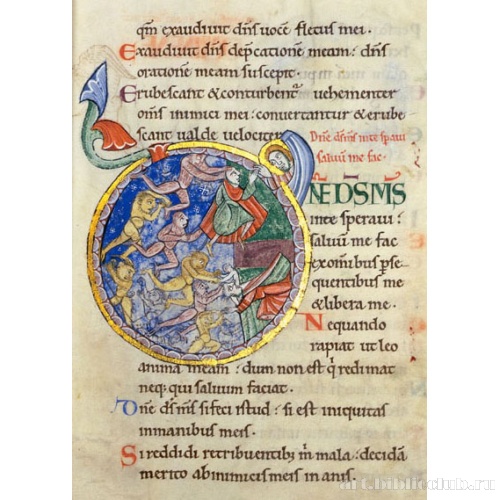 qm̄ exaudivit dn̄s vocē fletus mei.
Exaudivit dn̄s dep̄cationē meam: dn̄s
orationē meam suscepit.
Erubescant & conturbent᷑ vehementer
om̄s inimici mei: convertantur & erube
scant valde velociter.
Dn̄e ds̄ ms̄ in te sp̄avi
salvū me fac
NE DS MS
in te speravi:
salvū me fac
ex om̄ibus p̱se
quentibus me
& libera me.
Nequando
rapiat ut leo
animā meam: dum non est q̇ redimat
neq: qui salvum faciat.
Dn̄e ds̄ ms̄ si feci istud: si est iniquitas
in manibus meis.
Si reddidi retribuentib; m̄ mala: decidā
merito ab inimicis meis inanis.
art.biblioclub.ru